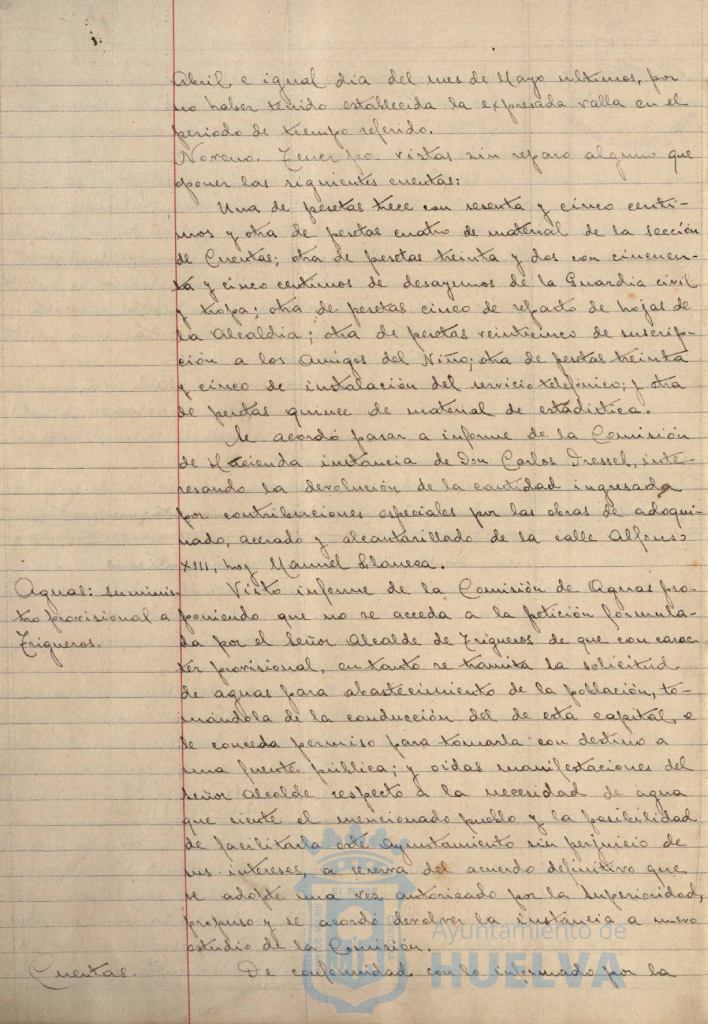 Abril e igual dia del mes de Mayo ultimos, por
no haber tenido establecida la expresada valla en el
periodo de tiempo referido.
Noveno. Tener por vistas sin reparo alguno que
oponer las siguientes cuentas:
Una de pesetas trece con sesenta y cinco centi-
mos y otra de pesetas cuatro de material de la sección
de Cuentas; otra de pesetas treinta y dos con cincuen-
ta y cinco centimos de desayunos de la Guardia civil
y tropa; otra de pesetas cinco de reparto de hojas de
la Alcaldia; otra de pesetas veinticinco de suscrip-
ción a los Amigos del Niño; otra de pesetas treinta
y cinco de instalación del servicio telefónico; y otra
de pesetas quince de material de estadistica.
Se acordó pasar a informe de la Comisión
de Hacienda instancia de Don Carlos Dressel, inte-
resando la devolución de la cantidad ingresada
por contribuciones especiales por las obras de adoqui-
nado, acerado y alcantarillado de la calle Alfonso
XIII, hoy Manuel
Aguas: suminis-
tro provisional a
Trigueros.
Visto informe de la Comisión de Aguas pro-
poniendo que no se acceda a la petición formula-
da por el Señor Alcalde de Trigueros de que con carac-
ter provisional, en tanto se tramita la solicitud
de aguas para abastecimiento de la población, to-
mándola de la conducción del de esta capital, e
se conceda permiso para tomarla con destino a
una fuente pública; y oidas manifestaciones del
Señor Alcalde respecto a la necesidad de agua
que siente el mencionado pueblo y la posibilidad
de facilitarla este Ayuntamiento sin perjuicio de
sus intereses, a reserva del acuerdo definitivo que
se adopte una vez autorizado por la Superioridad,
propuso y se acordó devolver la instancia a nuevo
estudio de la Comisión.
Cuentas.
De conformidad con lo informado por la
Ayuntamiento de
HUELVA